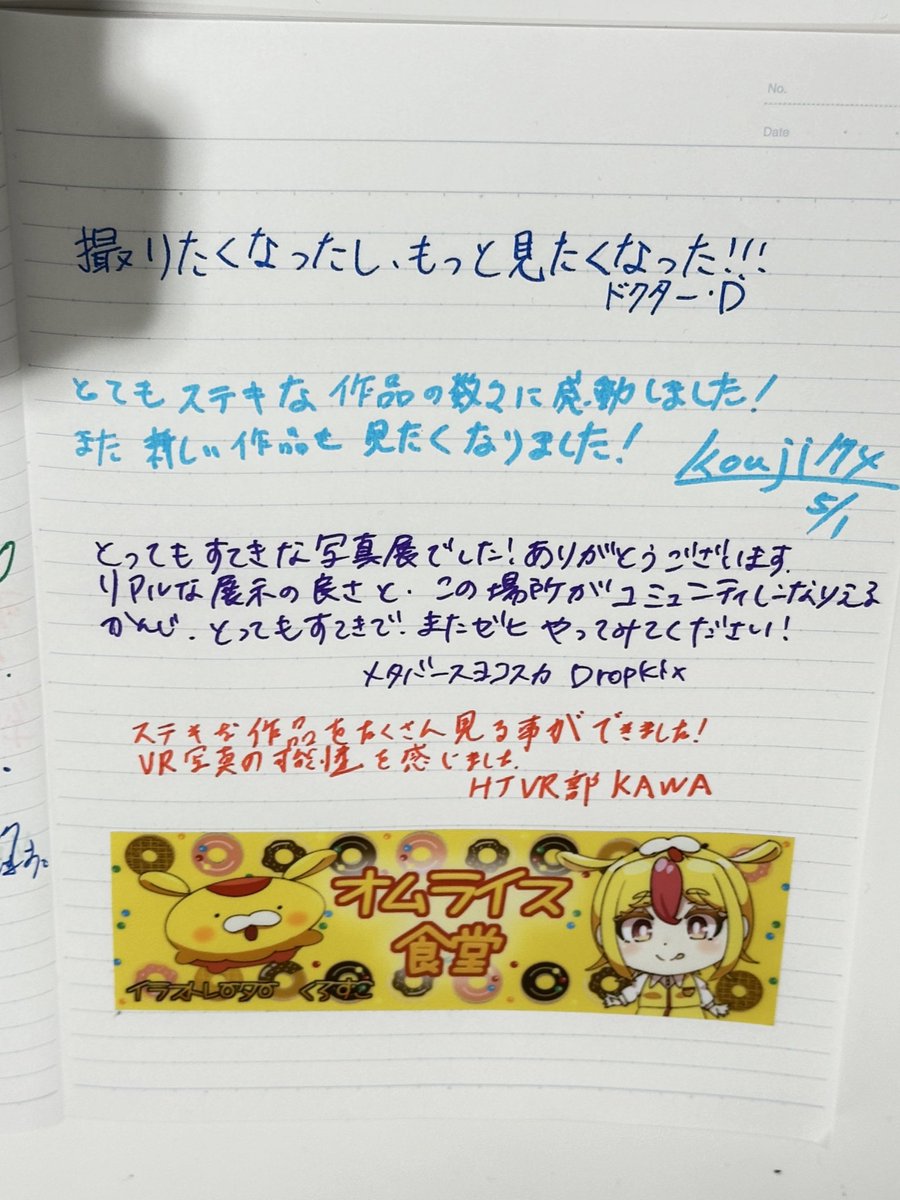 No.
Date
撮りたくなったし、もっと見たくなった!!!
ドクター・D
とてもステキな作品の数々に感動しました!
また新しい作品も見たくなりました!
kouji
5/1
とってもすてきな写真展でした!ありがとうございます.
リアルな展示の良さと、この場所がコミュニティになりえる
かんじ、とってもすてきで、またぜヒやってみてください!
メタバースヨコスカ DropKix
ステキな作品をたくさん見る事ができました!
VR写真の可能性を感じました.
HTVR部 KAWA
オムライス
食堂
イラストLOGO